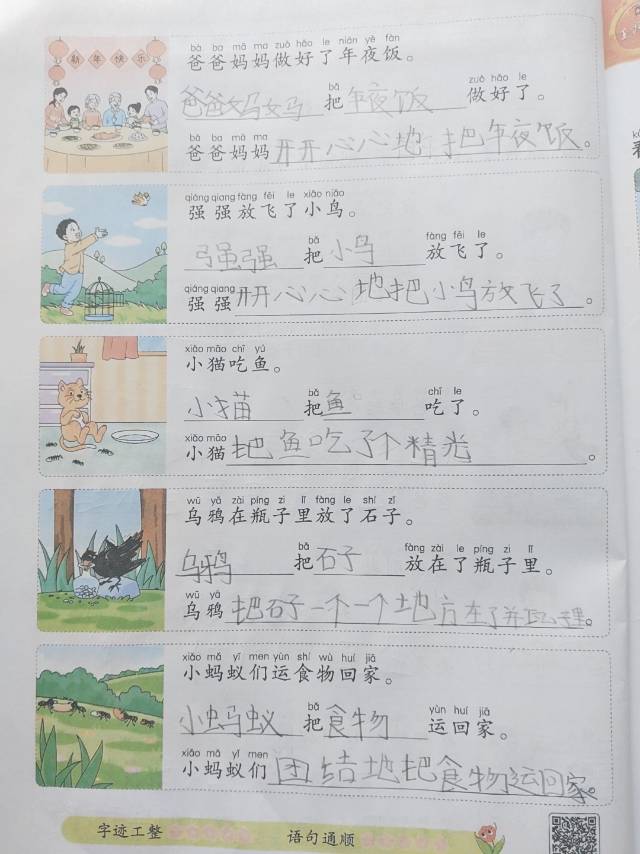 新年快乐
bà ba mā ma zuò hǎo le nián yè fàn
爸爸妈妈做好了年夜饭。
bǎ zuò hǎo le
爸爸妈妈把年夜饭做好了。
bà ba mā ma
爸爸妈妈开开心心地把年夜饭。
qiáng qiang fàng fēi le xiǎo niǎo
强强放飞了小鸟。
bǎ fàng fēi le
强强把小鸟放飞了。
qiáng qiang
强强开开心心地把小鸟放飞了。
xiǎo māo chī yú
小猫吃鱼。
bǎ chī le
小猫把鱼吃了。
xiǎo māo
小猫把鱼吃了个精光。
wū yā zài píng zi lǐ fàng le shí zǐ
乌鸦在瓶子里放了石子。
bǎ fàng zài le píng zi lǐ
乌鸦把石子放在了瓶子里。
wū yā
乌鸦把石子一个一个地方在了并瓦子里。
xiǎo mǎ yǐ men yùn shí wù huí jiā
小蚂蚁们运食物回家。
bǎ yùn huí jiā
小蚂蚁把食物运回家。
xiǎo mǎ yǐ men
小蚂蚁们团结地把食物运回家。
字迹工整 语句通顺